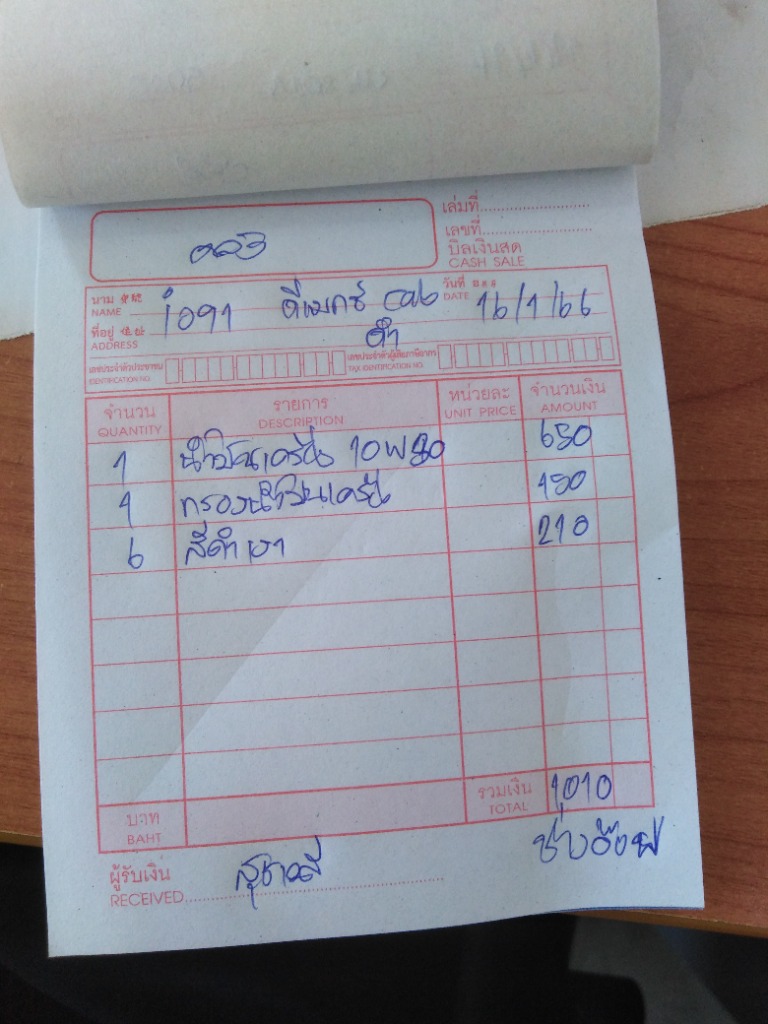 เล่มที่
เลขที่
บิลเงินสด
CASH SALE
นาม
NAME
ดีแมกซ์ cab
วันที่
DATE 16/1/66
ที่อยู่
ADDRESS
ดำ
เลขประจำตัวประชาชน
IDENTIFICATION NO.
เลขประจำตัวผู้เสียภาษีอากร
TAX IDENTIFICATION NO.
จำนวน รายการ หน่วยละ จำนวนเงิน
QUANTITY DESCRIPTION UNIT PRICE AMOUNT
1 น้ำมันเครื่อง 650
1 กรองน้ำมันเครื่อง 150
6 สีดำเงา 210
บาท รวมเงิน 1010
BAHT TOTAL
ผู้รับเงิน
RECEIVED